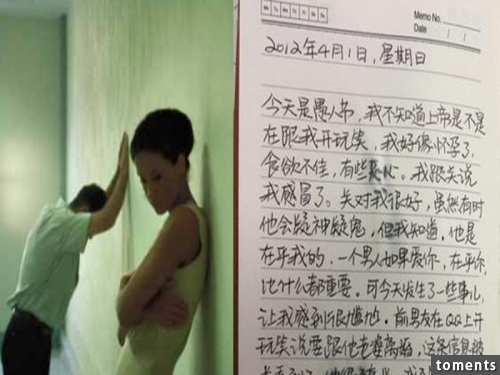 Memo No.
Date / /
2012年4月1日,星期日
今天是愚人节,我不知道上帝是不是
在跟我开玩笑,我好像怀孕了,
食欲不佳,有些恶心。我跟关说
我感冒了。关对我很好,虽然有时
他会疑神疑鬼,但我知道,他是
在乎我的,一个男人如果爱你,在乎你,
比什么都重要。可今天发生了一些事儿,
让我感到很尴尬。前男友在QQ上开
玩笑说要跟他老婆离婚,这条信息被
toments